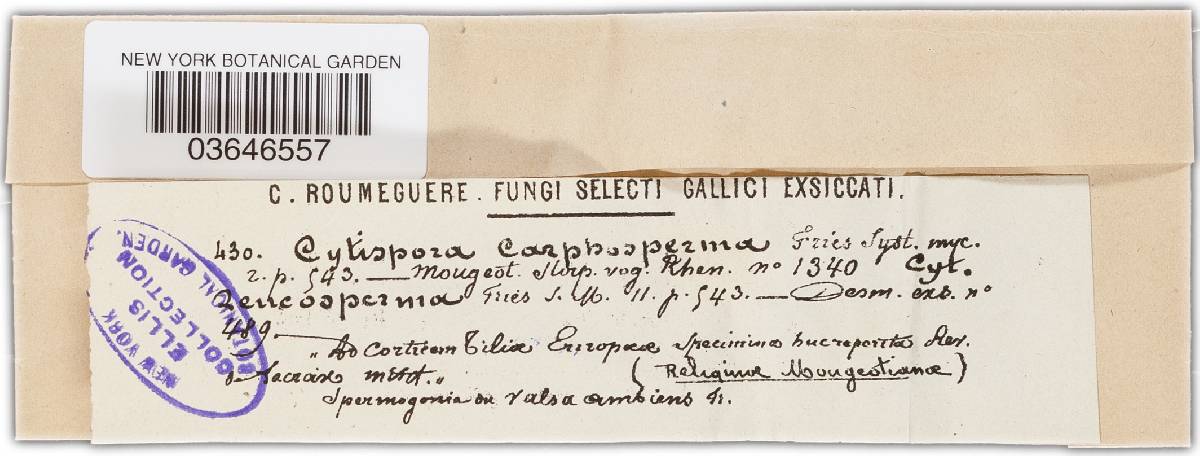 NEW YORK BOTANICAL GARDEN
03646557
C. ROUMEGUERE. FUNGI SELECTI GALLICI EXSICCATI.
430. Cytispora Carphosperma Fries Syst. myc.
2. p. 543. — Mougeot. Stirp. vog. Rhen. n° 1340 Cyt.
Leucosperma Fries S. M. II. p. 543. — Desm. exs. n°
489 —
„ Ad corticem Tiliæ Europææ specimina huc reporta
Lacroix „
(Reliquiæ Mougeotianæ)
Spermogonia du Valsa ambiens Fr.
NEW YORK
BOTANICAL GARDEN.
ELLIS
COLLECTION